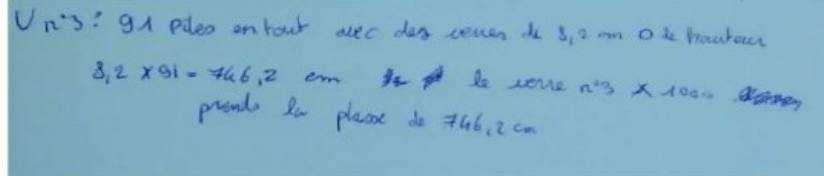 V n°3 : 91 piles en tout avec des verres de 8,2 cm de hauteur
8,2 x 91 = 746,2 cm le verre n°3 x 1000
prends la plasse de 746,2 cm